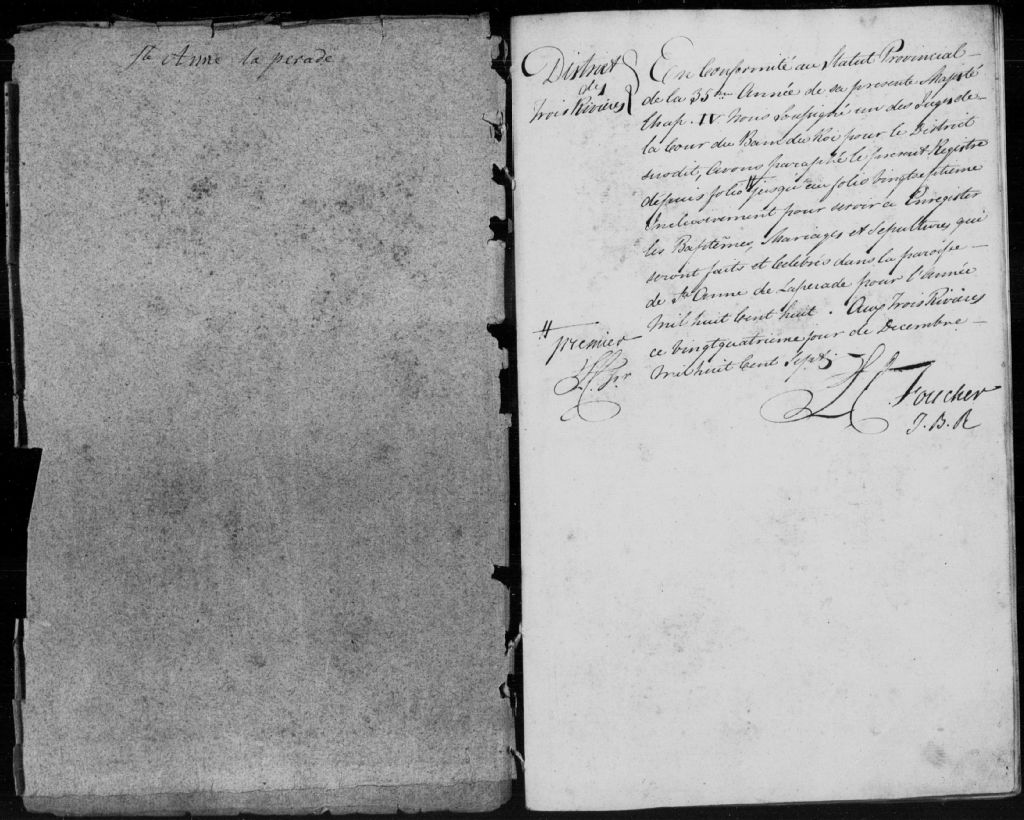 Ste Anne la perade
District
de
Trois Rivières
En Conformité au Statut Provincial
de la 35me Année de sa presente Majesté
Chap. IV Nous Soussigné un des Juges de
la Cour du Banc du Roi pour le District
susdit, avons paraphé le present Registre
depuis folio # jusqu'au folio vingtseptieme
Inclusivement pour servir a Enregister
les Baptêmes, Mariages et Sepultures qui
seront faits et Celebrés dans la paroisse
de Ste Anne de Laperade pour l'année
Mil huit Cent huit. Aux Trois Rivières
ce vingtquatrieme jour de Decembre
Mil huit Cent Sept.
# premier
L. C. Fr
L C Foucher
J. B. R